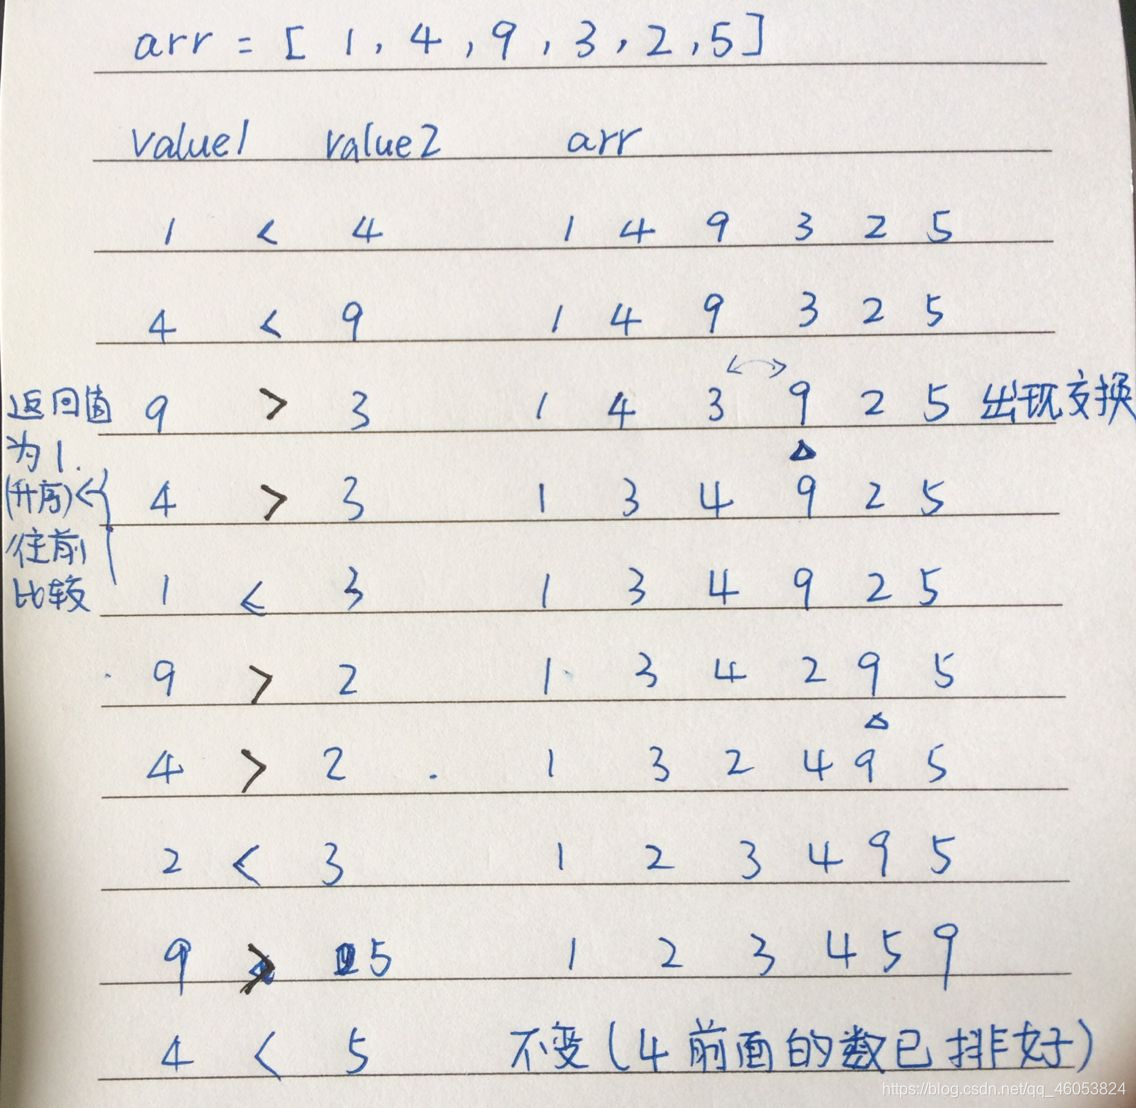 arr = [ 1, 4, 9, 3, 2, 5]
value1 value2 arr
1 < 4 1 4 9 3 2 5
4 < 9 1 4 9 3 2 5
返回值 9 > 3 1 4 3 9 2 5 出现交换
为1.
(升序) 4 > 3 1 3 4 9 2 5
往前
比较 1 < 3 1 3 4 9 2 5
9 > 2 1 3 4 2 9 5
4 > 2 1 3 2 4 9 5
2 < 3 1 2 3 4 9 5
9 > 5 1 2 3 4 5 9
4 < 5 不变(4前面的数已排好)
https://blog.csdn.net/qq_46053824